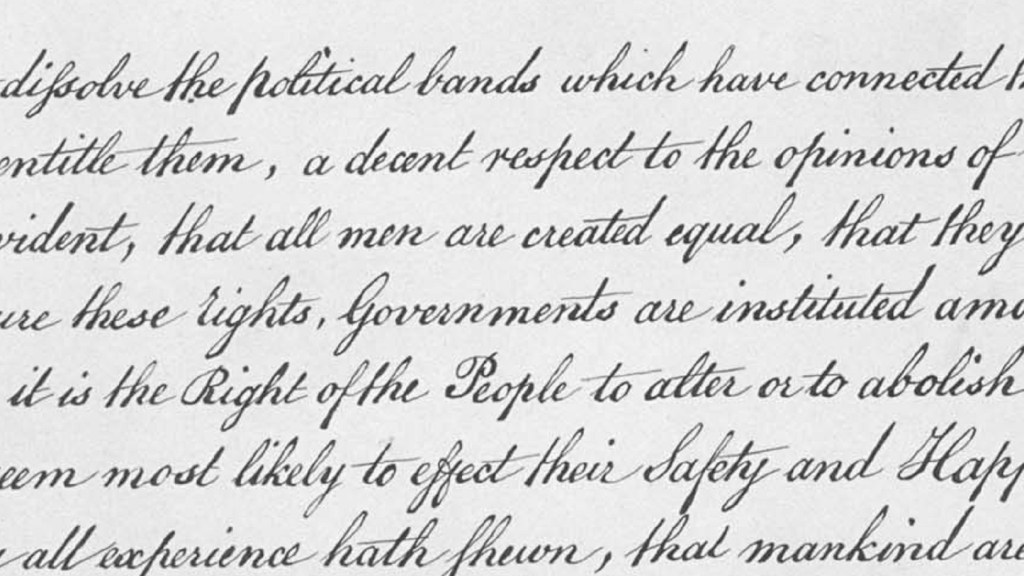 diſsolve the political bands which have connected th
entitle them, a decent respect to the opinions of
vident, that all men are created equal, that they
ure these rights, Governments are instituted amo
it is the Right of the People to alter or to abolish
eem most likely to effect their Safety and Happ
all experience hath ſhewn, that mankind are